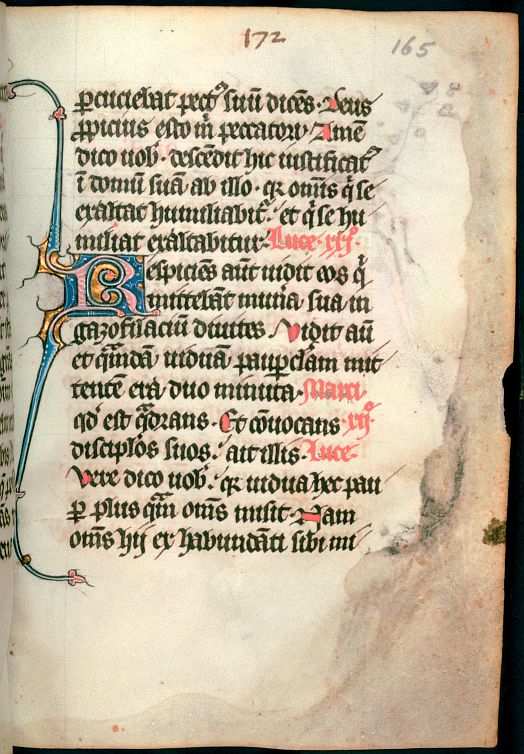 172
165
ꝑcuciebat pect⁹ suū dicēs. Deus
ꝓpicius esto m̄ peccatori. Amē
dico uob̄. descēdit hic iustificat⁹
ī domū suā ab illo. qꝛ omīs q̄ se
exaltat humiliabit᷑. et q̄ se hu
miliat exaltabitur. Luce. xxj°.
Respiciēs aūt uidit eos q̄
mittebāt mun̄a sua in
gazofilaciū diuites. Vidit aū
et q̄mdā uiduā pauꝑclam mit
tentē era duo minuta. Marci.
qd̄ est q̄drans. Et cōuocans xij°.
discipl̄os suos. ait illis. Luce.
Vere dico uob̄. qꝛ uidua hec pau
ꝑ plus q̄m om̄s misit. Nam
om̄s hij ex habundāti sibi mi